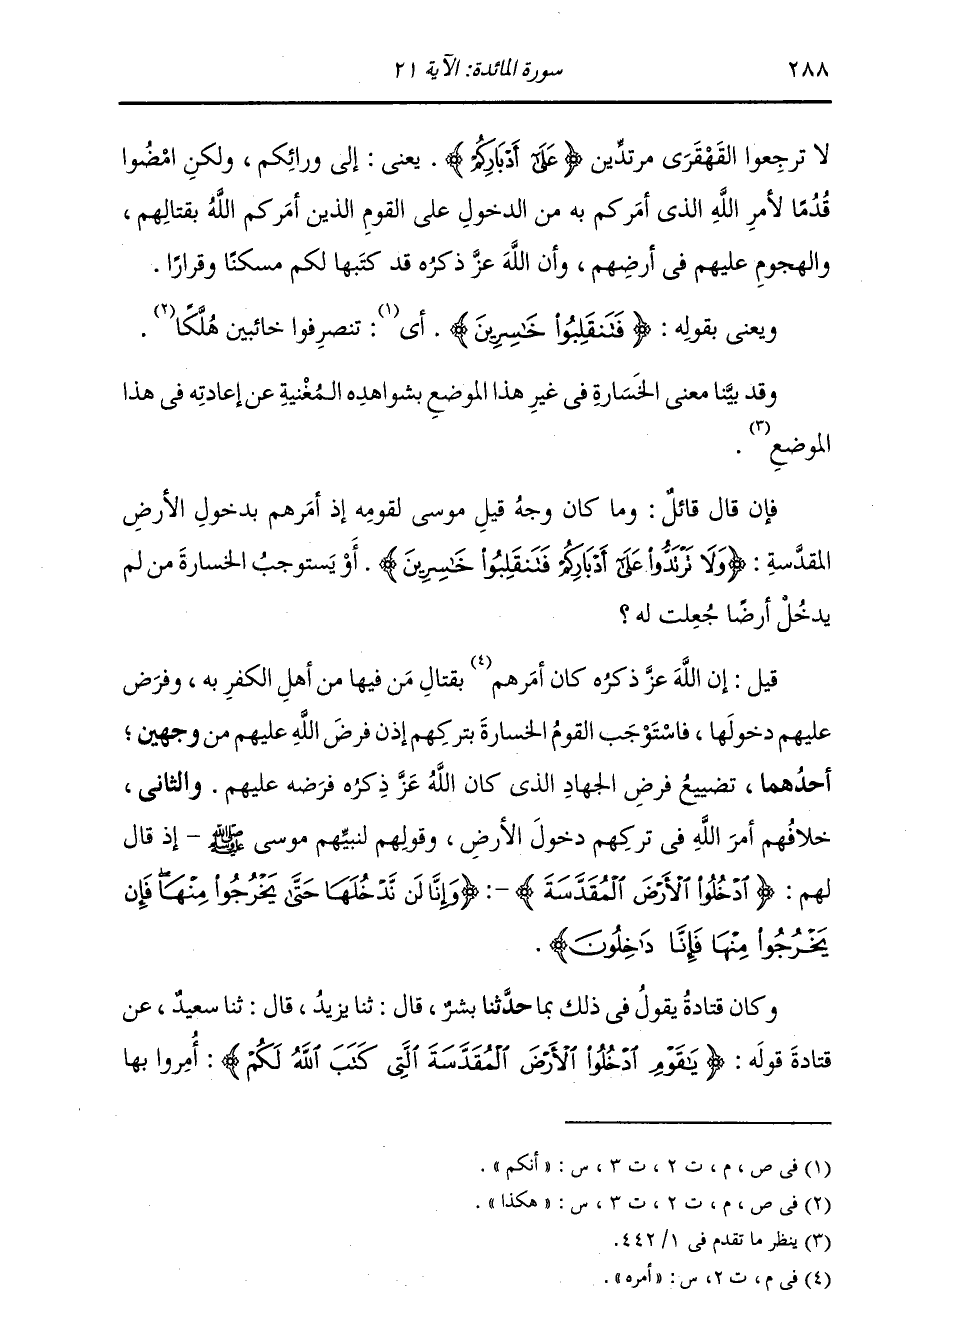 ٢٨٨ سورة المائدة: الآية ٢١
لا ترجِعوا القَهْقَرَى مرتدِّين ﴿عَلَىٰٓ أَدْبَارِكُمْ﴾ . يعنى : إلى ورائِكم ، ولكنِ امْضُوا
قُدُمًا لأمرِ اللَّهِ الذى أمَركم به من الدخولِ على القومِ الذين أمَركم اللَّهُ بقتالِهم ،
والهجومِ عليهم فى أرضِهم ، وأن اللَّهَ عزَّ ذكرُه قد كتَبها لكم مسكنًا وقرارًا .
ويعنى بقولِه : ﴿ فَتَنقَلِبُوا۟ خَـٰسِرِينَ﴾ . أى(١) : تنصرِفوا خائبين هُلَّكًا(٢) .
وقد بيَّنا معنى الخَسَارةِ فى غيرِ هذا الموضعِ بشواهدِه المُغْنيةِ عن إعادتِه فى هذا
الموضعِ(٣) .
فإن قال قائلٌ : وما كان وجهُ قيلِ موسى لقومِه إذ أمَرهم بدخولِ الأرضِ
المقدَّسةِ : ﴿وَلَا تَرْتَدُّوا۟ عَلَىٰٓ أَدْبَارِكُمْ فَتَنقَلِبُوا۟ خَـٰسِرِينَ﴾ . أَوْ يَستوجبُ الخسارةَ من لم
يدخُلْ أرضًا جُعِلت له ؟
قيل : إن اللَّهَ عزَّ ذكرُه كان أمَرهم(٤) بقتالِ مَن فيها من أهلِ الكفرِ به ، وفرَض
عليهم دخولَها ، فاسْتَوْجَب القومُ الخسارةَ بتركِهم إذن فرضَ اللَّهِ عليهم من وجهين ؛
أحدُهما ، تضييعُ فرضِ الجهادِ الذى كان اللَّهُ عَزَّ ذِكرُه فرَضه عليهم . والثانى ،
خلافُهم أمرَ اللَّهِ فى تركِهم دخولَ الأرضِ ، وقولِهم لنبيِّهم موسى ﷺ - إذ قال
لهم : ﴿ ٱدْخُلُوا۟ ٱلْأَرْضَ ٱلْمُقَدَّسَةَ ﴾ - : ﴿وَإِنَّا لَن نَّدْخُلَهَا حَتَّىٰ يَخْرُجُوا۟ مِنْهَا فَإِن
يَخْرُجُوا۟ مِنْهَا فَإِنَّا دَٰخِلُونَ﴾ .
وكان قتادةُ يقولُ فى ذلك بما حدَّثنا بشرٌ ، قال : ثنا يزيدُ ، قال : ثنا سعيدٌ ، عن
قتادةَ قولَه : ﴿ يَـٰقَوْمِ ٱدْخُلُوا۟ ٱلْأَرْضَ ٱلْمُقَدَّسَةَ ٱلَّتِى كَتَبَ ٱللَّهُ لَكُمْ ﴾ : أُمِروا بها
(١) فى ص ، م ، ت ٢ ، ت ٣ ، س : «أنكم» .
(٢) فى ص ، م ، ت ٢ ، ت ٣ ، س : «هكذا» .
(٣) ينظر ما تقدم فى ١/ ٤٤٢.
(٤) فى م ، ت ٢، س : «أمره» .